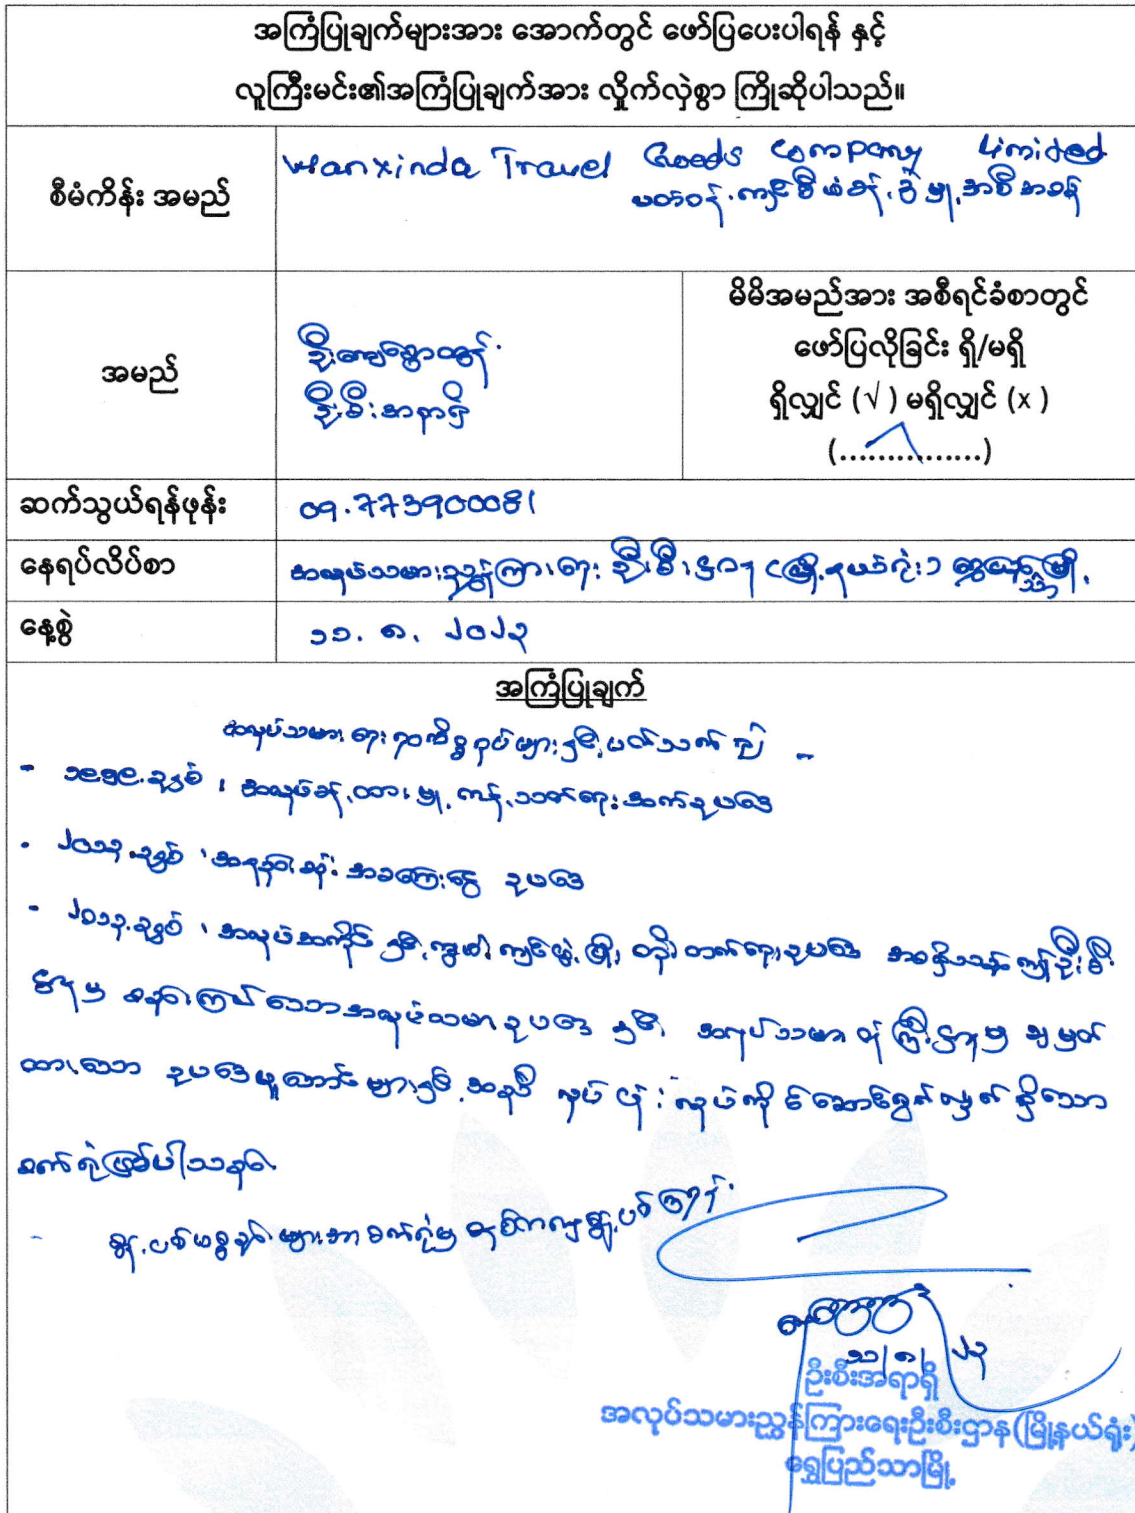 အကြံပြုချက်များအား အောက်တွင် ဖော်ပြပေးပါရန် နှင့်
လူကြီးမင်း၏အကြံပြုချက်အား လှိုက်လှဲစွာ ကြိုဆိုပါသည်။
စီမံကိန်း အမည်
Wanxinda Travel Goods Company Limited
ပတ်ဝန်းကျင်စီမံခန့်ခွဲမှုအစီအစဉ်
အမည်
ဦးကျော်စွာထွန်း
ဦးစီးအရာရှိ
မိမိအမည်အား အစီရင်ခံစာတွင်
ဖော်ပြလိုခြင်း ရှိ/မရှိ
ရှိလျှင် (√ ) မရှိလျှင် (x )
(................)
ဆက်သွယ်ရန်ဖုန်း
09.773900081
နေရပ်လိပ်စာ
အလုပ်သမားညွှန်ကြားရေးဦးစီးဌာန မြို့နယ်ရုံး၊ ရွှေပြည်သာမြို့
နေ့စွဲ
၁၁.၈.၂၀၂၃
အကြံပြုချက်
အလုပ်သမားရေးရာကိစ္စရပ်များနှင့်ပတ်သက်၍ -
- ၁၉၅၉ ခုနှစ်၊ အလုပ်ခန့်ထားမှု ကန့်သတ်ရေးအက်ဥပဒေ
- ၂၀၁၃ ခုနှစ်၊ အနည်းဆုံး အခကြေးငွေ ဥပဒေ
- ၂၀၁၃ ခုနှစ်၊ အလုပ်အကိုင်နှင့်ကျွမ်းကျင်မှု ဖွံ့ဖြိုးတိုးတက်ရေးဥပဒေ ဤဦးစီး
ဌာနမှ အလုပ်သမားဥပဒေနှင့် အလုပ်သမားဝန်ကြီးဌာနမှ ချမှတ်
ထားသော ဥပဒေမူဘောင်များနှင့်အညီ လုပ်ငန်းလုပ်ကိုင်ဆောင်ရွက်လျှက်ရှိသော
စက်ရုံဖြစ်ပါသည်။
- စွန့်ပစ်ပစ္စည်းများအား စက်ရုံမှ စွန့်ပစ်ကြရန်
၁၁/၈/၂၃
ဦးစီးအရာရှိ
အလုပ်သမားညွှန်ကြားရေးဦးစီးဌာန(မြို့နယ်ရုံး)
ရွှေပြည်သာမြို့